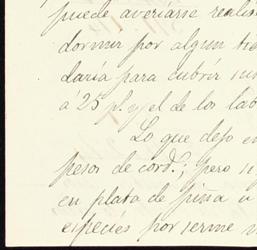 puede averiarse realis
dormir por algun tie
daría para cubrir su
á 25 p. y el de los lab
Lo que dejo en
pesos de cord.; pero si
en plata de piña u
especies por serme m